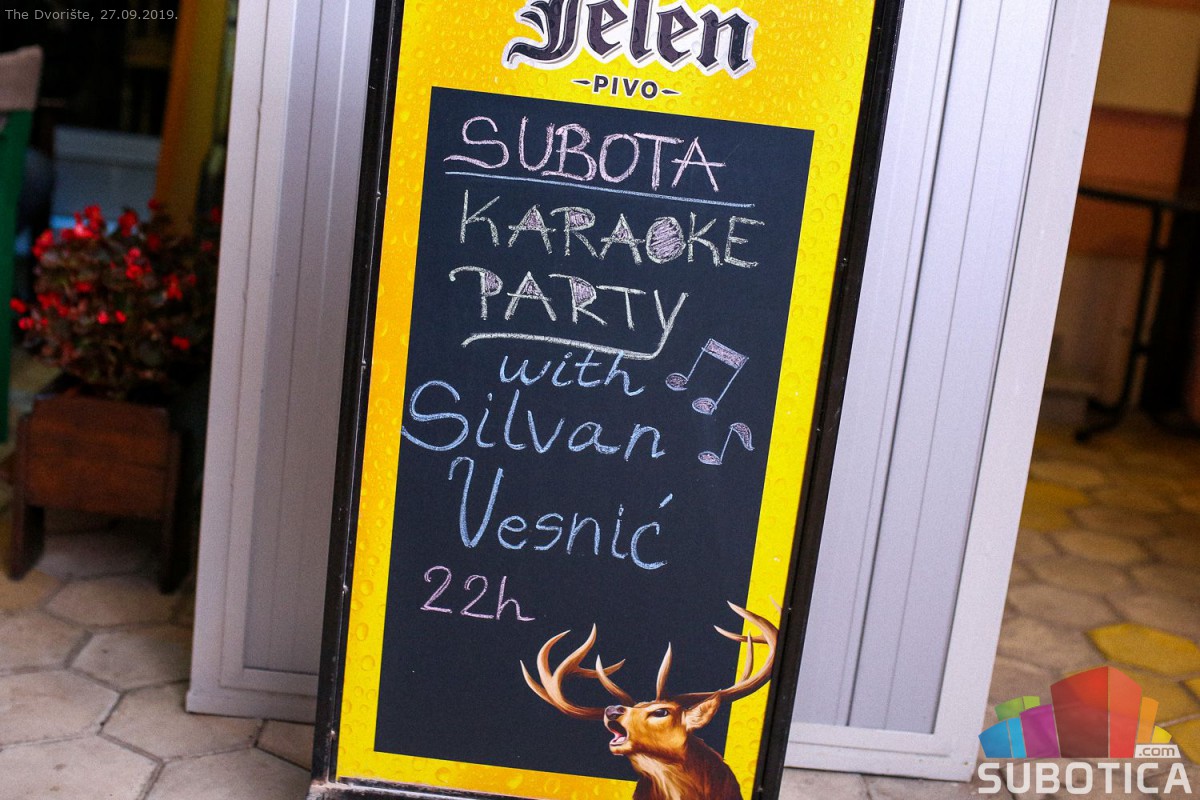 The Dvorište, 27.09.2019.
Jelen
PIVO
SUBOTA
KARAOKE
PARTY
with
Silvan
Vesnić
22h
.com
SUBOTICA